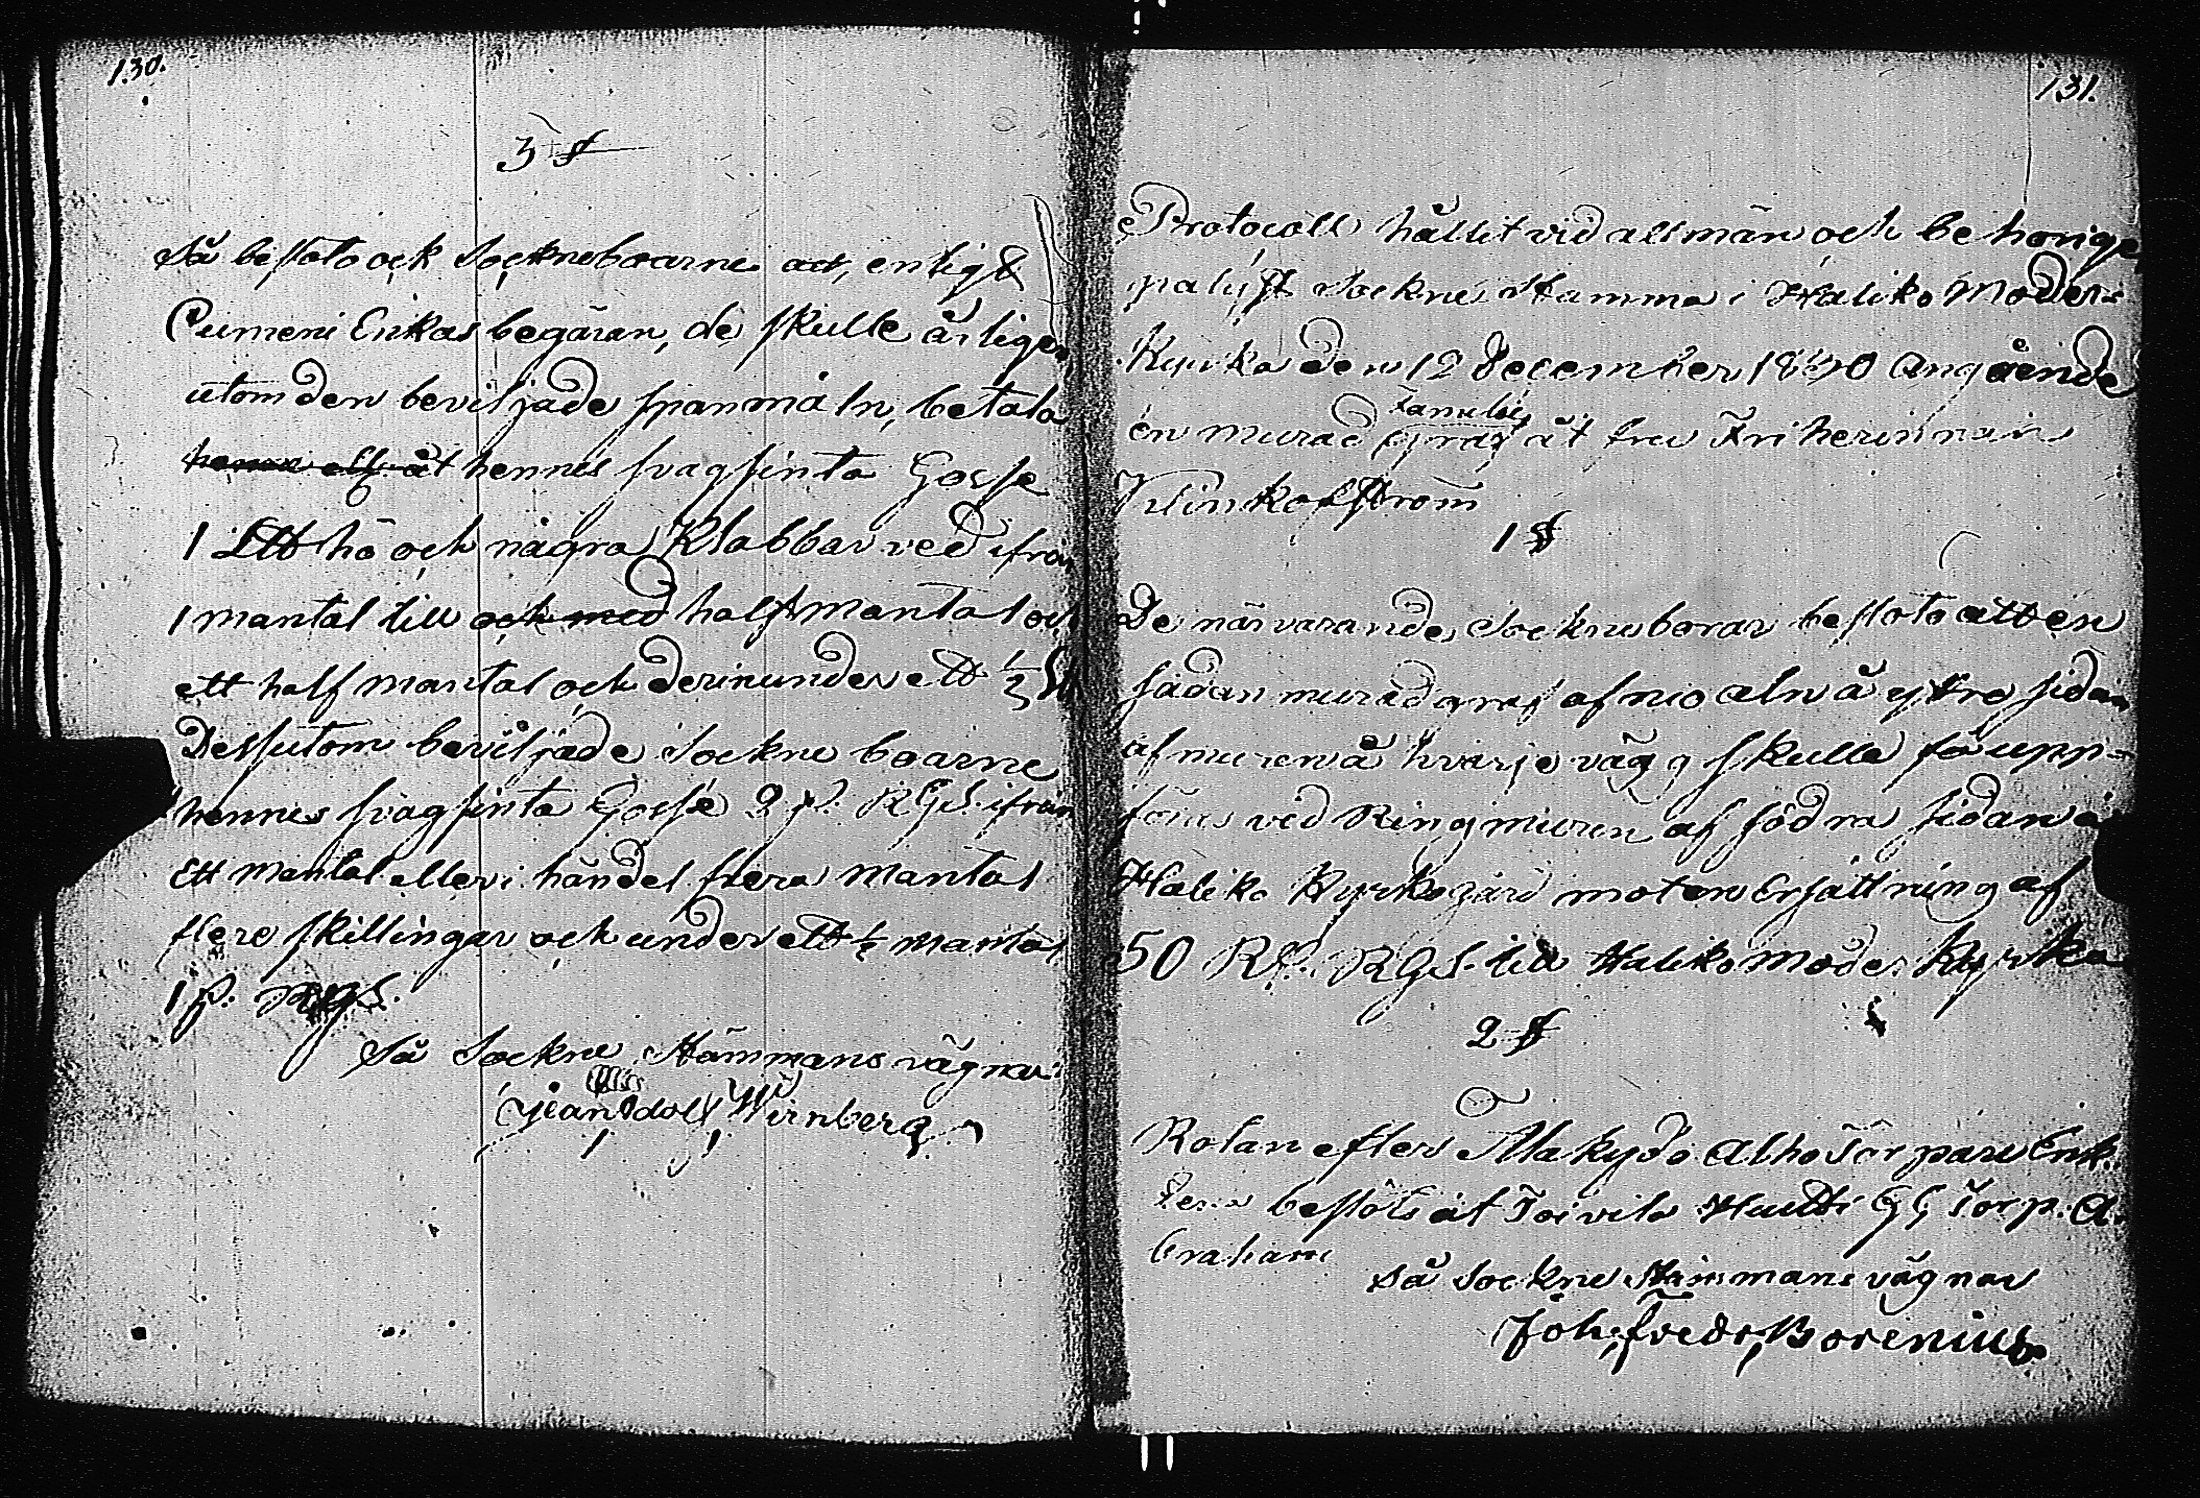 130.
3 §
Så beslöto ock Sockneboarne att, enligt
Cumeni Erikas begäran, de skulle årligen,
utom den beviljade spanmåln, betala
åt hennes svagsinta Gosse
1 L℔ hö och några Klabbar ved ifrån
1 mantal till och med halft mantal och
ett half mantal och derinunder ett ½ L℔
Dessutom beviljade Sockne boarne
hennes svagsinta Gosse 2 s. RGS. ifrån
Ett mantal eller i händel flera mantal
flere skillingar och under ett ½ mantal
1 s. RGS.
På Sockne Stämmans vägnar:
Jean Adolf Wirnberg
131.
Protocoll hållit vid allmän och behörige
pålyst Sockne Stämma i Haliko Moder-
Kyrka den 12 December 1830 angående
en murad Familie graf åt fru Friherinnan
Vilinkofström
1 §
De närvarande Socknebovar beslöto att en
sådan murad graf af nio aln å yttre sidan
af muren å hvarje vägg skulle få upp-
föras vid Ringmuren af södra sidan å
Haliko Kyrkogård mot en Ersättning af
50 R. RGS. till Haliko Moder Kyrka
2 §
Rotan efter Alakydö Alho Torpare Enk.
bestöts åt Toivila Hutti Torp. A.
braham
På Sockne Stämmans vägnar
Joh: Fredr: Borenius